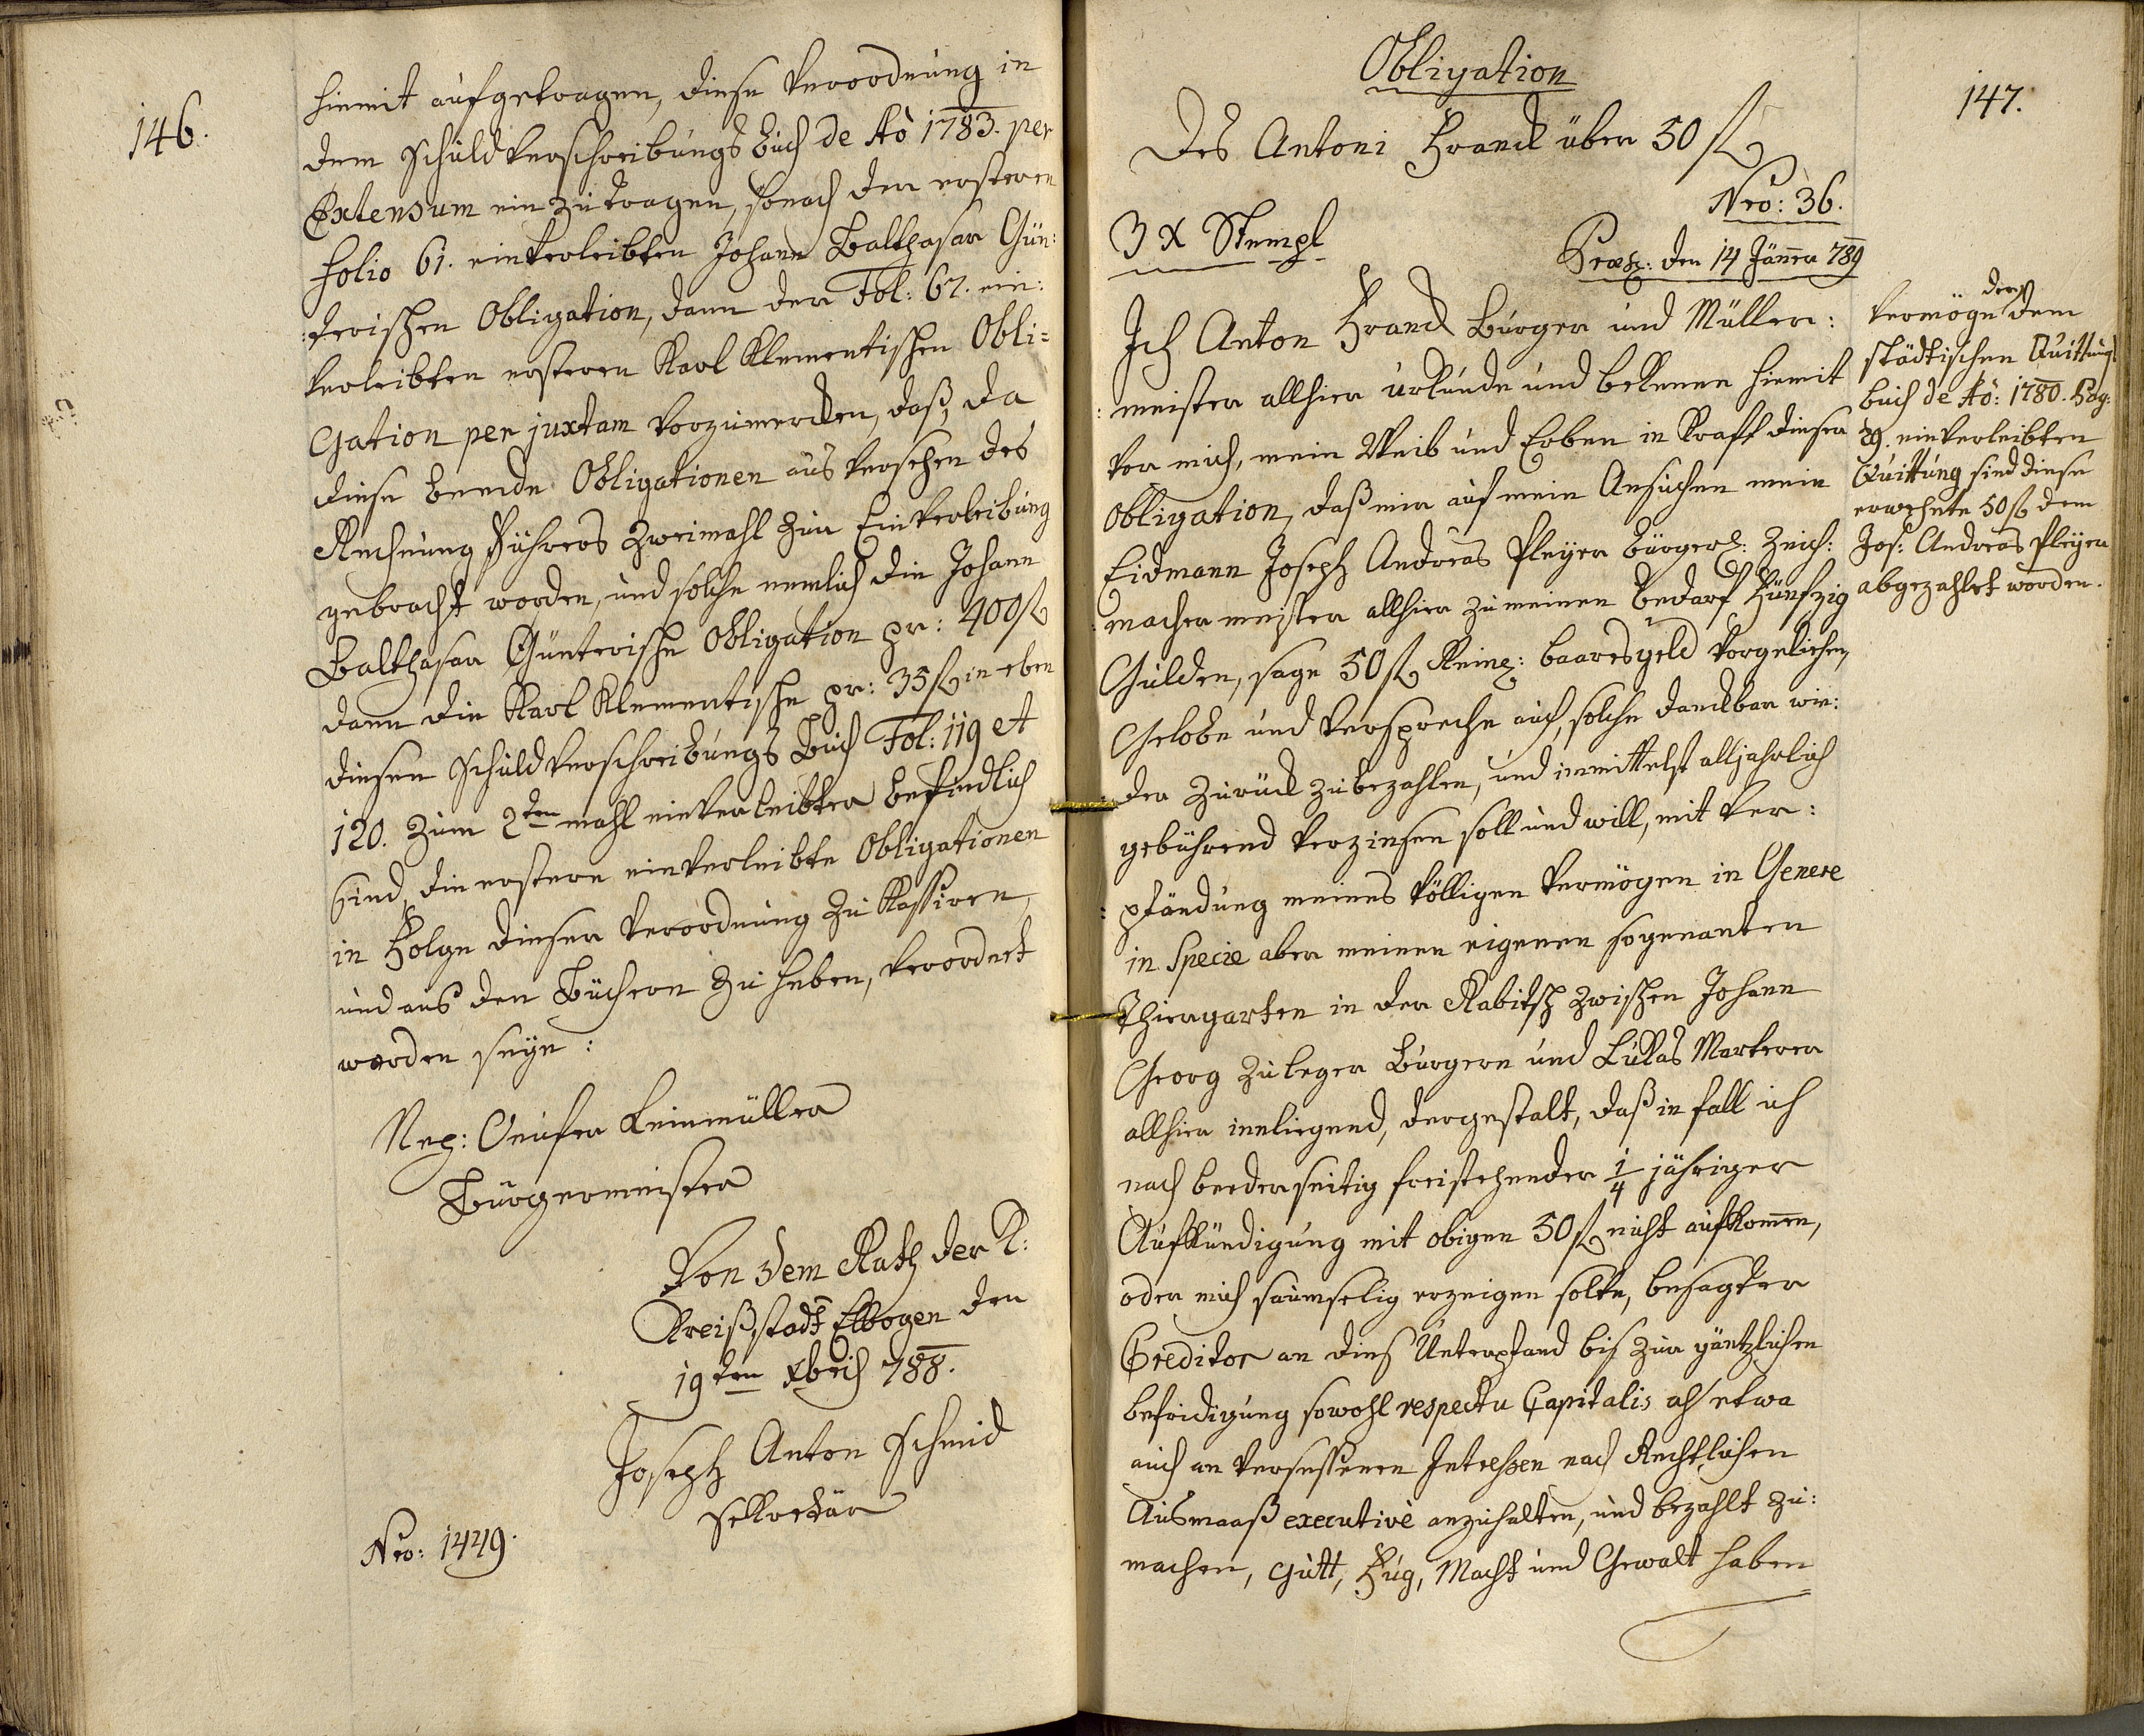 146.
hiemit aufgetragen, diese Verordnung in
dem Schuldverschreibungs Buch de Aò 1783. per
Extensum einzutragen, sonach der ersteren
Folio 61. einverleibten Johann Balthasar Gün:
:terischen Obligation, dann der Fol: 67. ein:
verleibten ersteren Karl Klementischen Obli=
gation per juxtam vorzumerken, daß, da
diese beende Obligationen aus versehen des
Rechnung Führers zweimahl zur Einverleibung
gebracht worden, und solche nemlich die Johann
Balthasar Günterische Obligation pr: 400 f
dann die Karl Klementische pr: 35 f in eben
diesen Schuldverschreibungs Buch Fol: 119 et
120. zum 2ten mahl einverleibter befindlich
sind, die erstere einverleibte Obligationen
in Folge dieser Verordnung zu Kassiren,
und aus den Büchern zu heben, verordnet
worden seye:
Nep: Leinmüller
Bürgermeister
Von dem Rath der K:
Kreißstadt Elbogen den
19ten Xbris 788.
Joseph Anton Schmid
Sekretär
Nro: 1449.
147.
Obligation
Des Antoni Franck über 50 f
Nro: 36.
3 X Stempl
Præs: den 14 Jäner 789
Ich Anton Franck Burger und Müller:
:meister allhier urkunde und bekenne hiemit
vor mich, mein Weib und Erben in Kraft dieser
Obligation, daß mir auf mein Ansuchen mein
Eidmann Joseph Andreas Pleyer bürgerl: Zeich:
:macher meister allhier zu meinen bedarf Fünfzig
Gulden, sage 50 f Reinl: baares geld vorgeliehen,
Gelobe und verspreche auch, solche danckbar wie:
:der zurück zubezahlen, und inmittelst alljahrlich
gebührend verzinsen soll und will, mit Ver:
:pfändung meines völligen Vermögen in Genere
in Specie aber meinen eigenen sogenanten
Thiergarten in der Rabitsch zwischen Johann
Georg Zuleger Burgern und Lukas Marterer
allhier inliegend, dergestalt, daß in fall ich
nach beederseitig freistehender 1/4 jähriger
Aufkündigung mit obigen 50 f nicht aufkomen,
oder mich saumselig erzeigen solte, besagter
Creditor an dies Unterpfand bis zur gäntzlichen
befridigung sowohl respectu Capitalis als etwa
auch an versessenen Intressen nach Rechtlichen
Ausmaaß executivè anzuhalten, und bezahlt zu:
machen, gutt, Fug, Macht und Gewalt haben
Vermöge der dem
städtischen Quittungs
buch de Aò: 1780. Pag:
29. einverleibten
Quittung sind diese
erwehnte 50 f dem
Jos: Andreas Pleyer
abgezahlet worden.